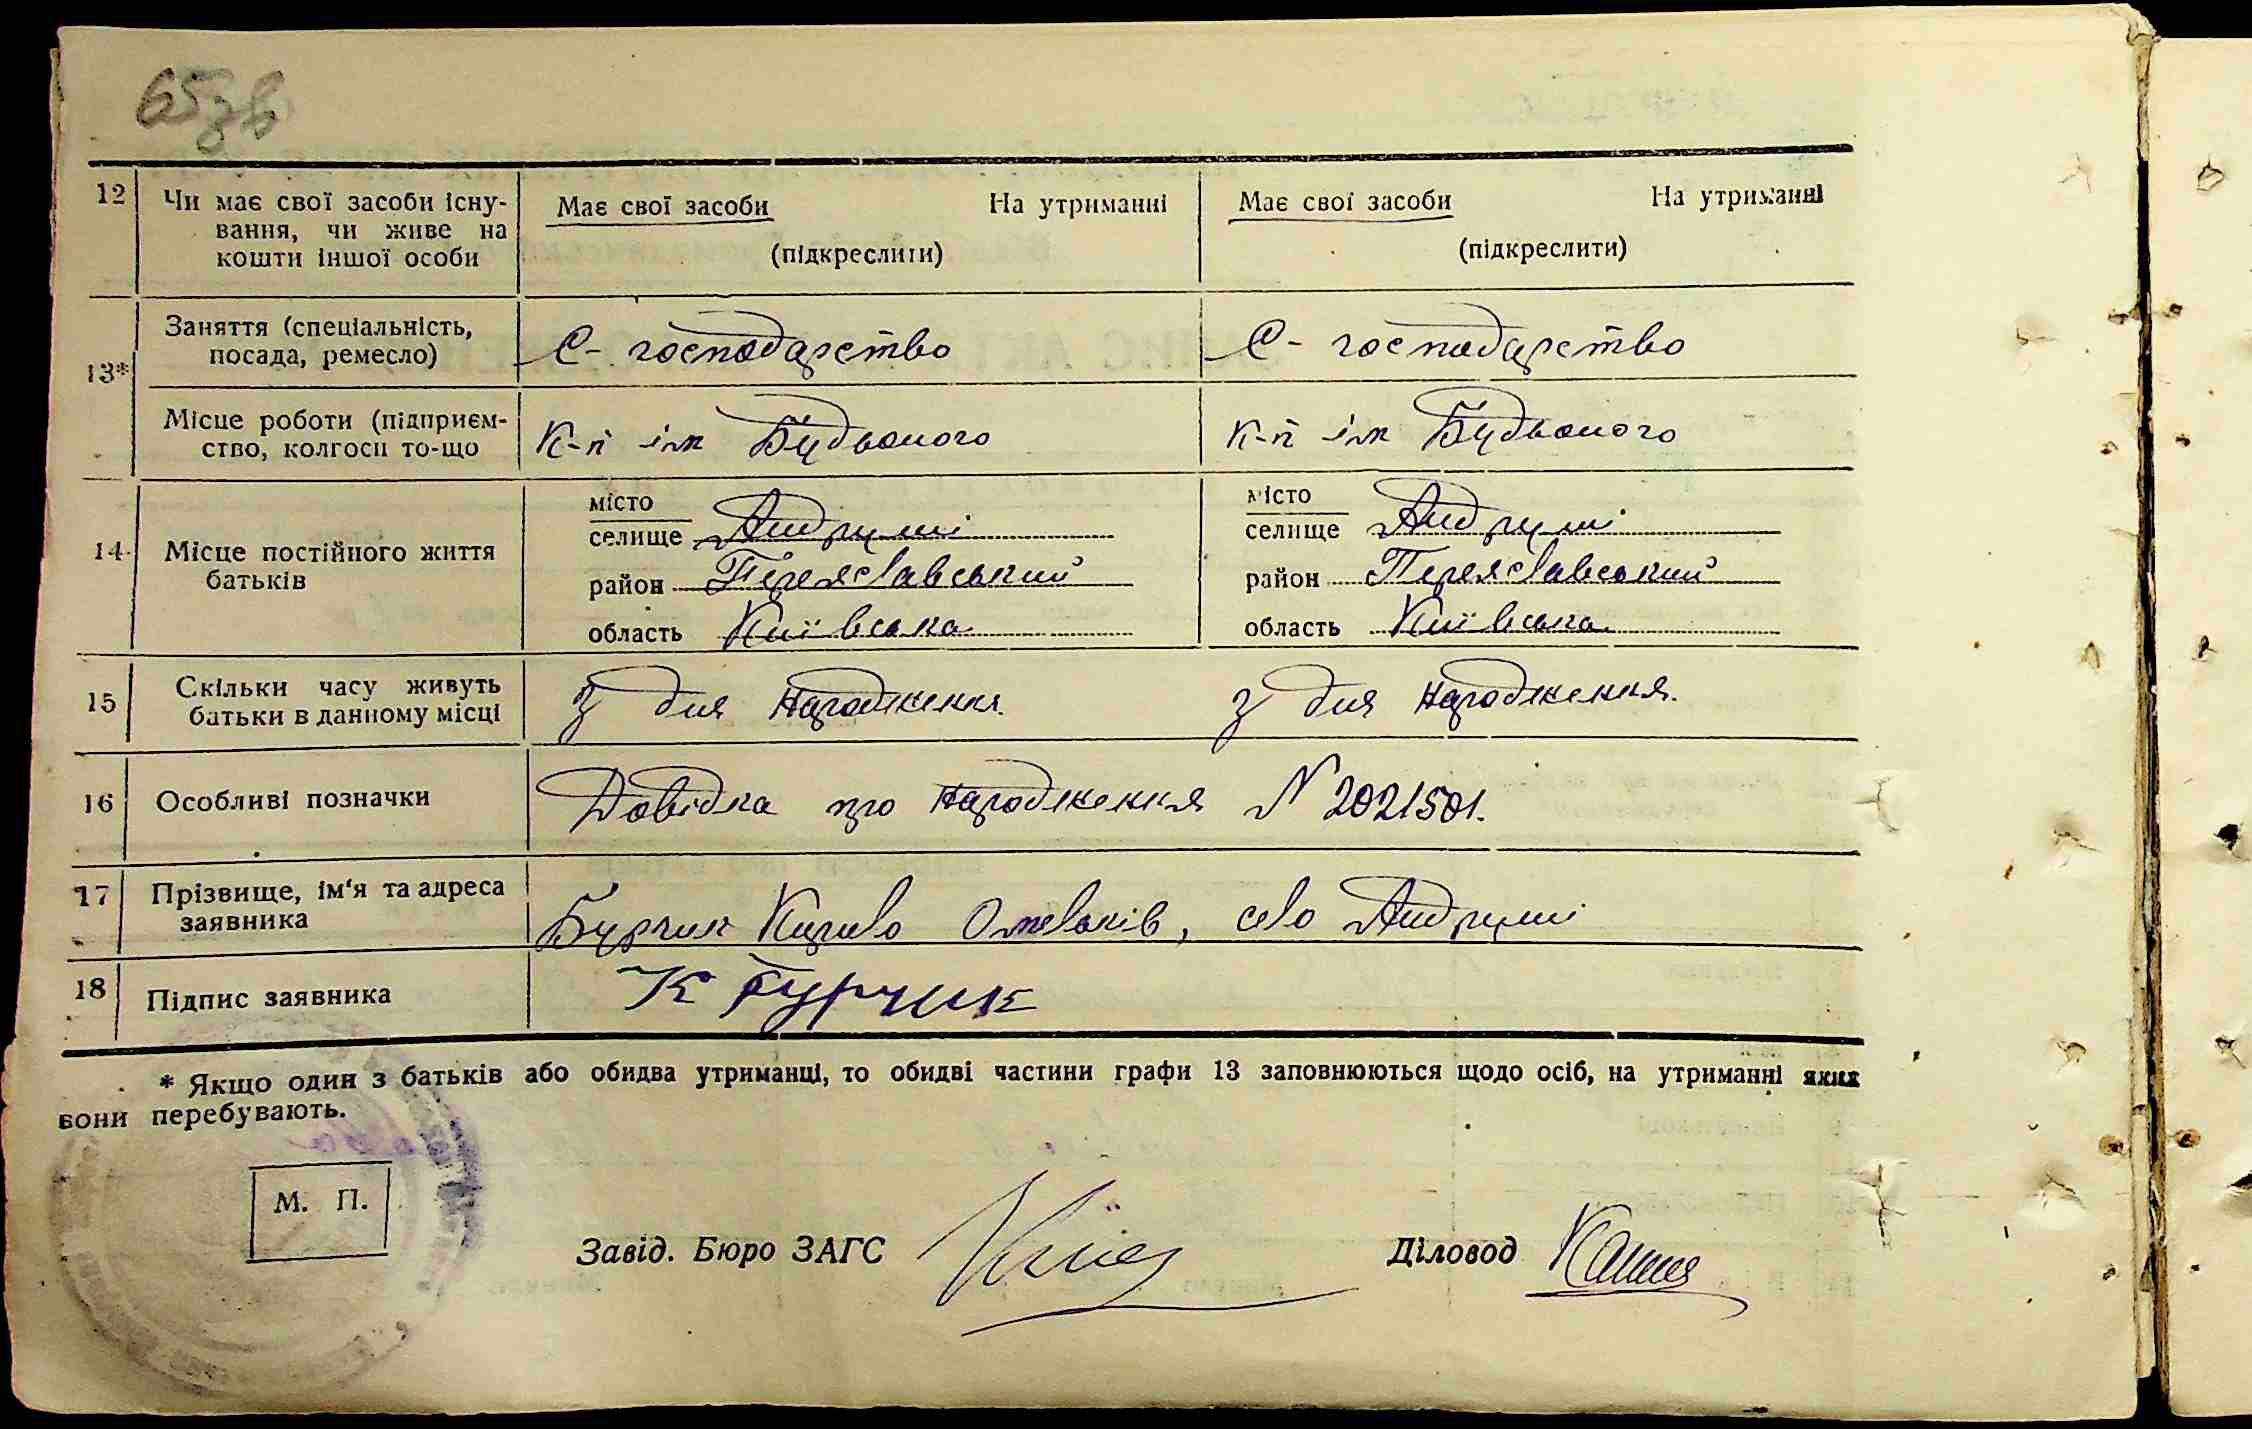 65зв
12 Чи має свої засоби існу- Має свої засоби На утриманні Має свої засоби На утриманні
вання, чи живе на (підкреслити) (підкреслити)
кошти іншої особи
13* Заняття (спеціальність, посада, ремесло) С-господарство С-господарство
Місце роботи (підприєм- К-п ім Будьоного К-п ім Будьоного
ство, колгосп то-що
14 Місце постійного життя батьків
місто місто
селище Андруші селище Андруші
район Переяславський район Переяславський
область Київська область Київська
15 Скільки часу живуть З дня народження З дня народження.
батьки в данному місці
16 Особливі позначки Довідка про народження N 2021501.
17 Прізвище, ім'я та адреса Бурчик Кирило Омельків, село Андруші
заявника
18 Підпис заявника К Бурчик
* Якщо один з батьків або обидва утриманці, то обидві частини графи 13 заповнюються щодо осіб, на утриманні яких
вони перебувають.
М. П.
Завід. Бюро ЗАГС Діловод